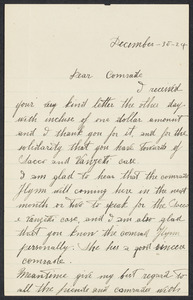 December - 18 - 24
Dear Comrade
I received
your very kind letter the other day
with incluse of one dollar amount
and I thank you for it and for the
solidarity that you have towards of
Sacco and Vanzetti case.
I am glad to hear that the comrade
Flynn will coming here in the next
month or two to speak for the Sacco
e Vanzetti case, and I am also glad
that you know the comrad Flynn
personally. She is a good sincere
comrade.
Meantime give my best regard to
all the friends and comrade with